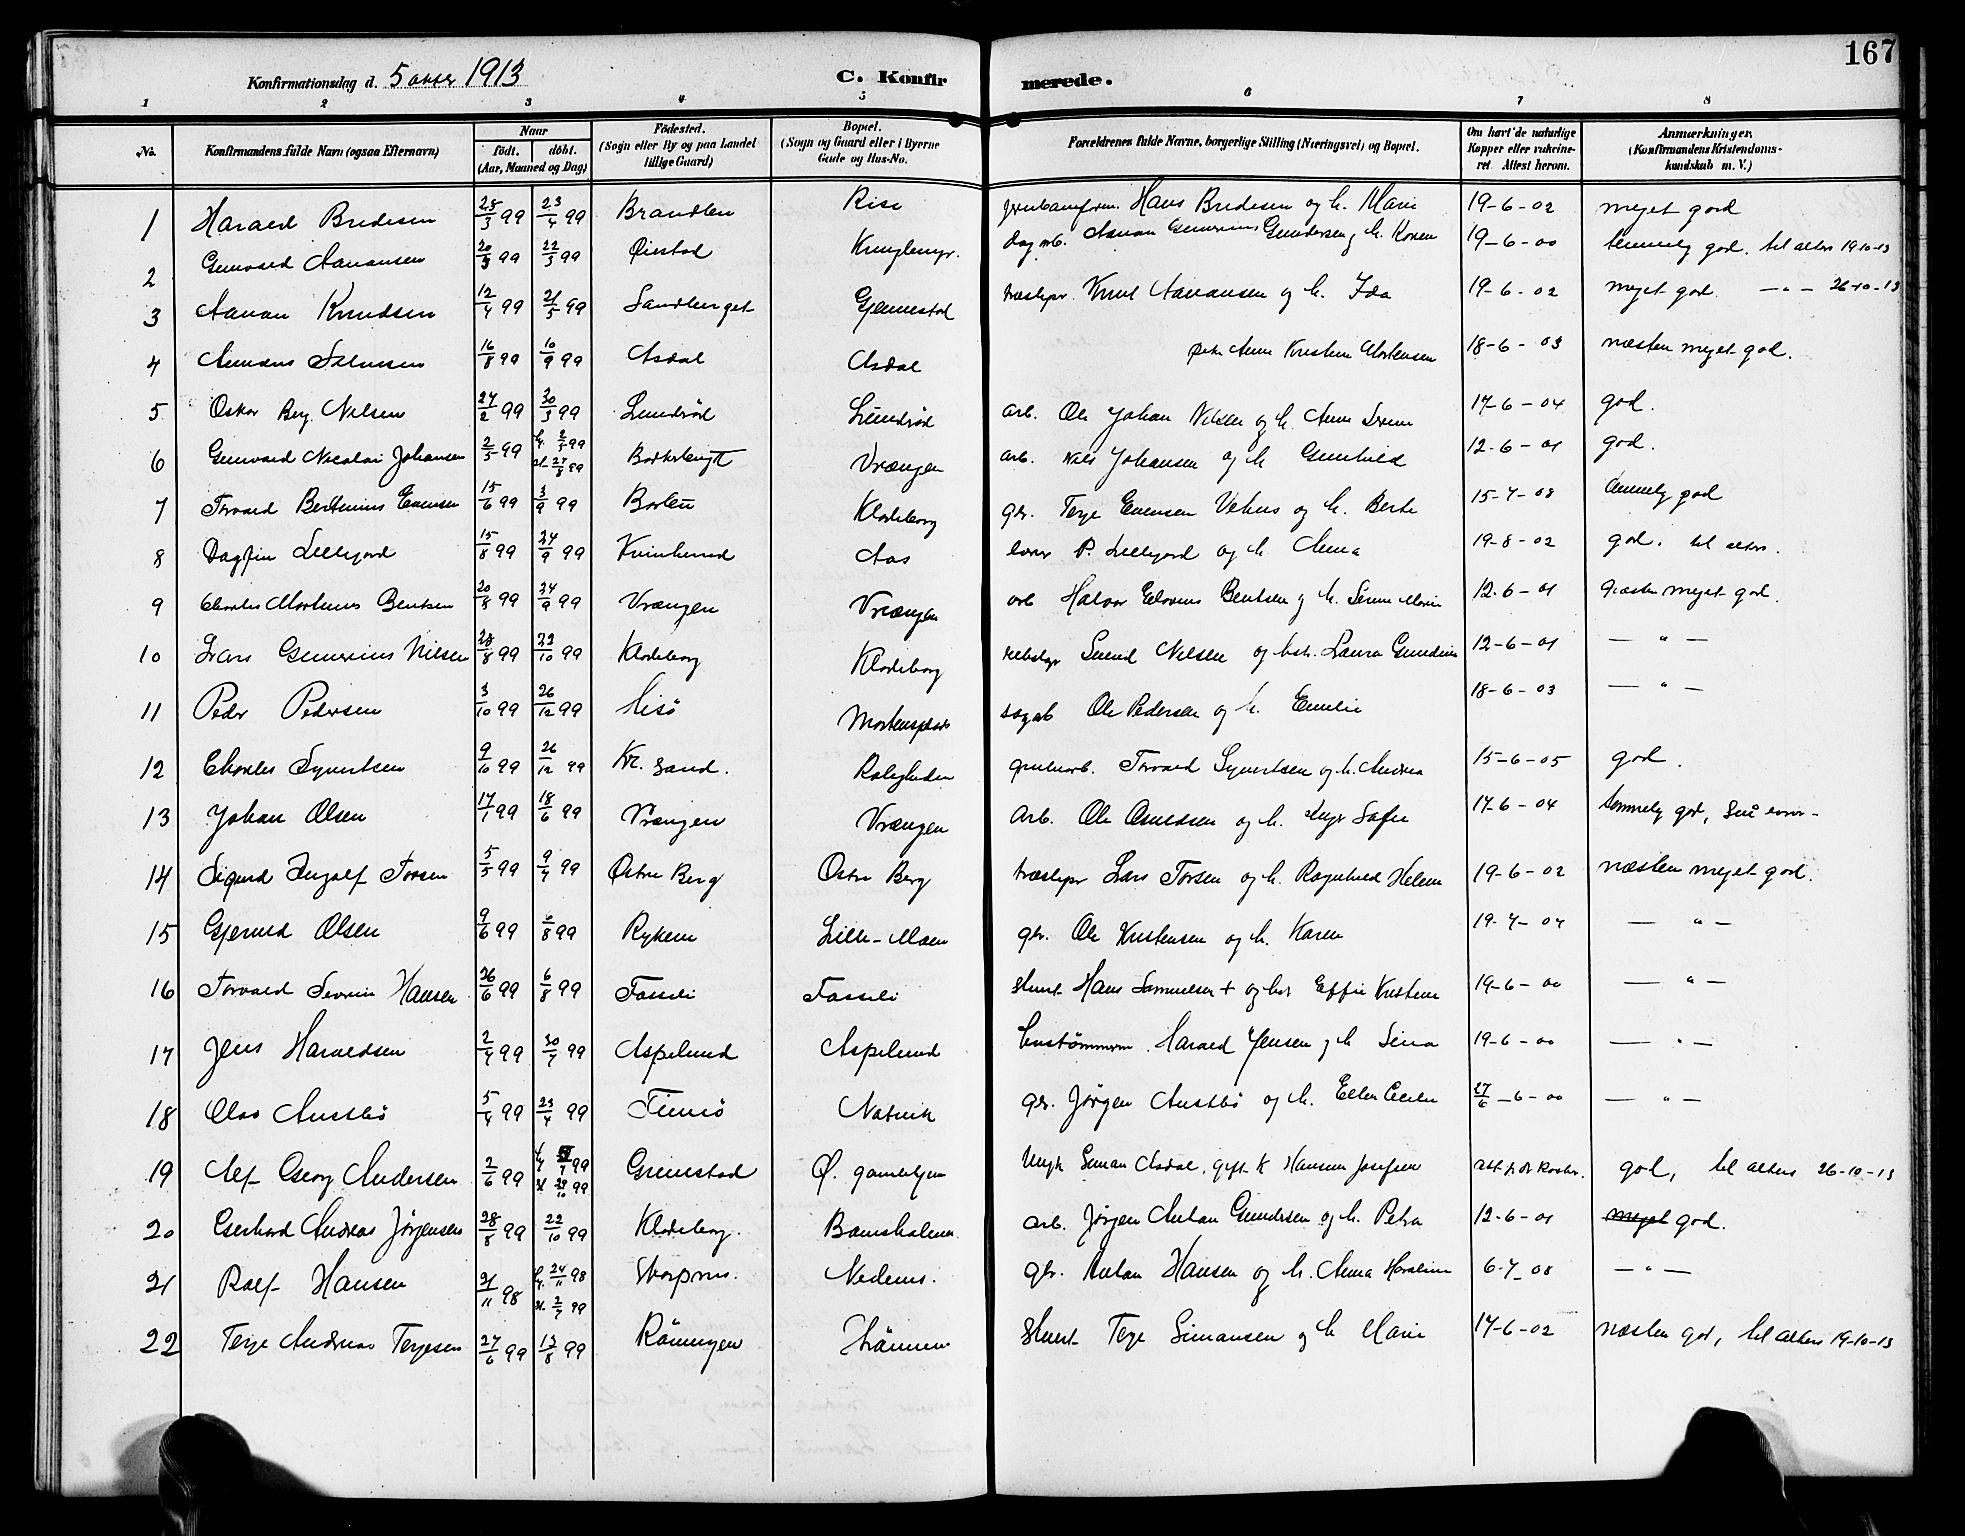 167
Konfirmationsdag d. 5 okter 1913
C. Konfirmerede.
1 2 3 4 5 6 7 8
No. Konfirmandens fulde Navn (ogsaa Efternavn) Naar født. døbt. (Aar, Maaned og Dag) Fødested. (Sogn eller By og paa Landet tillige Gaard) Bopæl. (Sogn og Gaard eller i Byerne Gade og Hus-No. Forældrenes fulde Navne, borgerlige Stilling (Næringsvei) og Bopæl. Om havt de naturlige Kopper eller vakcineret. Attest herom. Anmærkninger. (Konfirmandens Kristendomskundskab m. V.)
1 Harald Bredesen 25/3 99 23/4 99 Brandlen Rise Hans Bredesen og h. Marie 19-6-02 meget god
2 Gunvald Aanansen 20/3 99 22/5 99 Øiestad Kuglemyr. dag arb. Aanan Gunerius Gundersen og h. Karen 19-6-00 temmelig god. til alters 19-10-13
3 Aanan Knudsen 12/4 99 21/5 99 Sandberget Gjennestad træsliper Knut Aanansen og h. Ida 19-6-02 meget god. — " — 26-10-13
4 16/8 99 10/9 99 Asdal Asdal Anne Kristine Mortensen 18-6-03 næsten meget god.
5 Oskar Berg. Nilsen 27/2 99 30/3 99 Lundrød Lundrød arb. Ole Johan Nilsen og h. Anne 17-6-04 god.
6 Gunvald Nicolai Johansen 2/5 99 Vrængen arb. Nils Johansen og h. Gunhild 12-6-01 god.
7 Torvald Bertinius Evensen 15/6 99 3/9 99 Klodeborg gbr. Terje Evensen Vehus og h. Berte 15-7-08 temmelig god
8 Dagfin Lillejord 15/8 99 24/9 99 Kvinlund Aas lærer P. Lillejord og h. Anna 19-8-02 god. til alters.
9 Charles Martinus Bentsen 20/8 99 24/9 99 Vrængen Vrængen arb Halvor Elovius Bentsen og h. Marie 12-6-01 næsten meget god.
10 Lars Gunerius Nilsen 28/8 99 22/10 99 Klodeborg Klodeborg Svend Nilsen og hst. Laura Gundine 12-6-01 — " —
11 Peder Pedersen 3/10 99 26/12 99 Hisø Mortensplads sagarb Ole Pedersen og h. Emilie 18-6-03 — " —
12 Charles Syvertsen 9/10 99 26/12 99 Kr. sand. Roligheden grubearb. Torvald Syvertsen og h. Andrea 15-6-05 god.
13 Johan Olsen 17/1 99 18/6 99 Vrængen Vrængen Arb. Ole Osuldsen og h. Inger Sofie 17-6-04 temmelig god,
14 Sigurd Ingolf Torsen 5/5 99 9/7 99 Østre Berg Østre Berg træsliper Lars Torsen og h. Ragnhild Helene 19-6-02 næsten meget god.
15 Gjeruld Olsen 9/6 99 6/8 99 Rykene Lille-Moen gbr. Ole Kristensen og h. Karen 19-7-04 — " —
16 Torvald Severin Hansen 26/6 99 6/8 99 Fosseli Fosseli skomt Hans Samuelsen + og hst Effie Kristine 19-6-00 — " —
17 Jens Haraldsen 2/4 99 30/7 99 Aspelund Aspelund hustømmerm. Harald Jensen og h. Lina 19-6-00 — " —
18 Olav Austbø 5/4 99 23/4 99 Finnø Natvik gbr. Jørgen Austbø og h. Ellen Cecilie 27/6-6-00 — " —
19 Alf Georg Andersen 2/6 99 Grimstad Ø. gamlehjem Ungk Simon Asdal, gift k Hansine Josefsen att. f. dr. Kocher. god, til alters 26-10-13
20 Gerhard Andreas Jørgensen 28/8 99 22/10 99 Klodeborg. Bamsholene arb. Jørgen Anton Gundersen og h. Petra 12-6-01 meget god.
21 Rolf Hansen 21/11 98 h. 24/11 98 st. 2/7 99 Skarpnes. Nedenes. gbr. Anton Hansen og h. Anna Haraline 6-7-08 — " —
22 Terje Andreas Terjesen 27/6 99 13/8 99 Rønningen Strømmen Skomt Terje Simonsen og h. Marie 17-6-02 næsten god, til alters 19-10-13